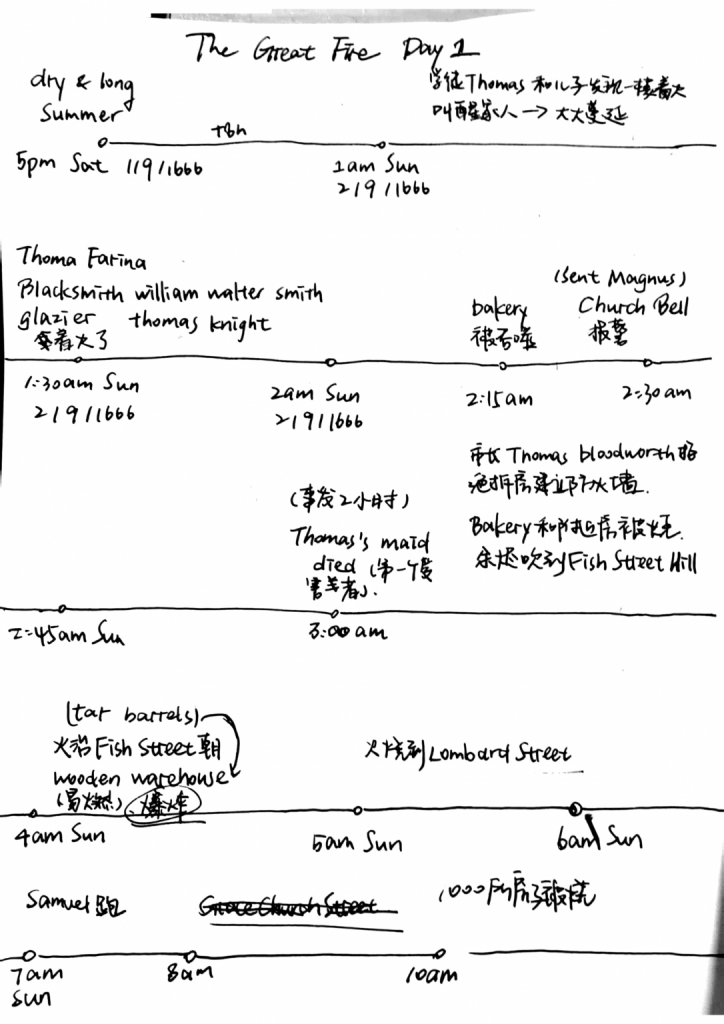 The Great Fire Day 1
dry & long
Summer
学徒Thomas 和儿子发现一楼着火
叫醒家人 → 大火蔓延
+8h
5pm Sat 1/9/1666
1am Sun
2/9/1666
Thoma Farina
Blacksmith william walter smith
glazier thomas knight
家着火了
bakery
被吞噬
(Sent Magnus)
Church Bell
报警
1:30am Sun
2/9/1666
2am Sun
2/9/1666
2:15am
2:30am
市长Thomas bloodworth拒
绝拆房建立防火墙.
Bakery和附近房被烧.
余烬吹到Fish Street Hill
(事发2小时)
Thomas's maid
died (第一个受
害者).
2:45am Sun
3:00am
(tar barrels)
火沿Fish Street 朝
wooden warehouse
(易燃) 爆炸
火烧到Lombard Street
4am Sun
5am Sun
6am Sun
Samuel 跑
Grace Church Street
1,000户房子被烧
7am
Sun
8am
10am